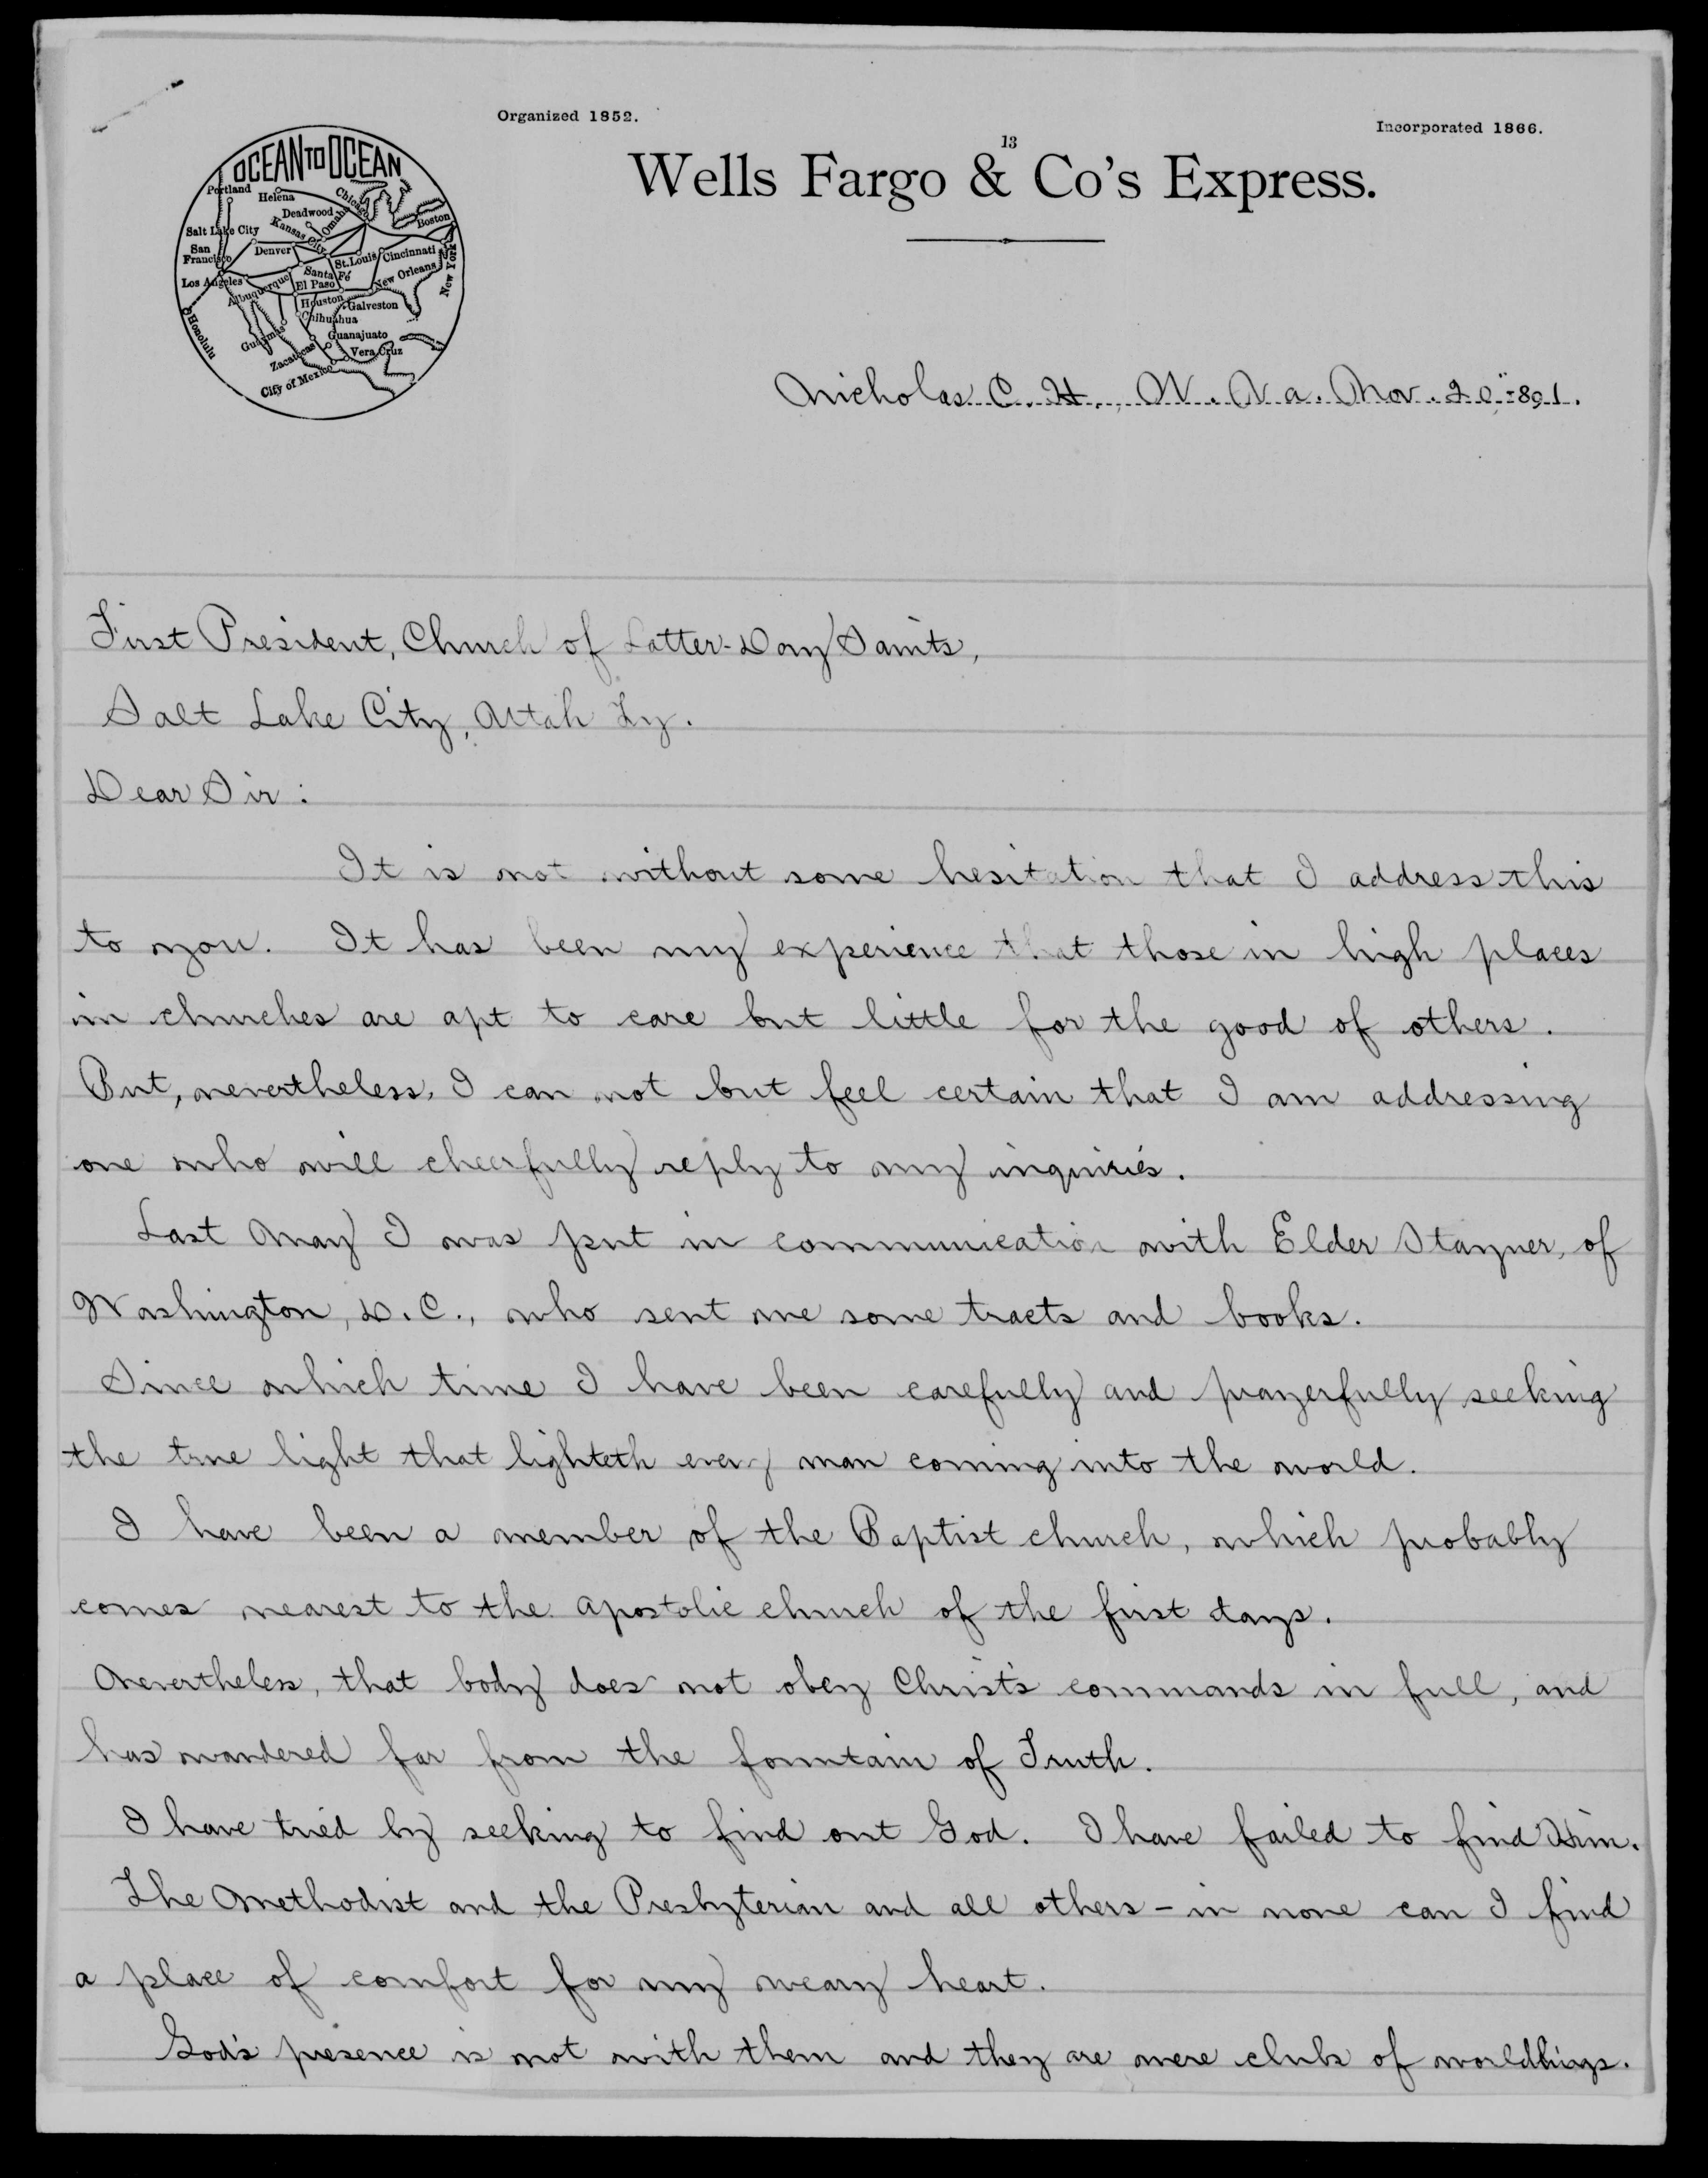 Organized 1852.
Incorporated 1866.
13
Wells Fargo & Co's Express.
OCEAN TO OCEAN
Portland
Helena
Chicago
Deadwood
Omaha
Boston
Salt Lake City
Kansas City
San Francisco
Denver
St. Louis
Cincinnati
New York
Los Angeles
Santa Fé
Albuquerque
El Paso
New Orleans
Houston
Galveston
Chihuahua
Honolulu
Guaymas
Guanajuato
Zacatecas
Vera Cruz
City of Mexico
Nicholas C. H., W. Va. Nov. 20" 1891.
First President, Church of Latter-Day Saints,
Salt Lake City, Utah Ty.
Dear Sir:
It is not without some hesitation that I address this
to you. It has been my experience that those in high places
in churches are apt to care but little for the good of others.
But, nevertheless, I can not but feel certain that I am addressing
one who will cheerfully reply to my inquiries.
Last May I was put in communication with Elder Stayner, of
Washington, D.C., who sent me some tracts and books.
Since which time I have been carefully and prayerfully seeking
the true light that lighteth every man coming into the world.
I have been a member of the Baptist church, which probably
comes nearest to the apostolic church of the first days.
Nevertheless, that body does not obey Christ's commands in full, and
has wandered far from the fountain of Truth.
I have tried by seeking to find out God. I have failed to find Him.
The Methodist and the Presbyterian and all others - in none can I find
a place of comfort for my weary heart.
God's presence is not with them and they are mere clubs of worldlings.